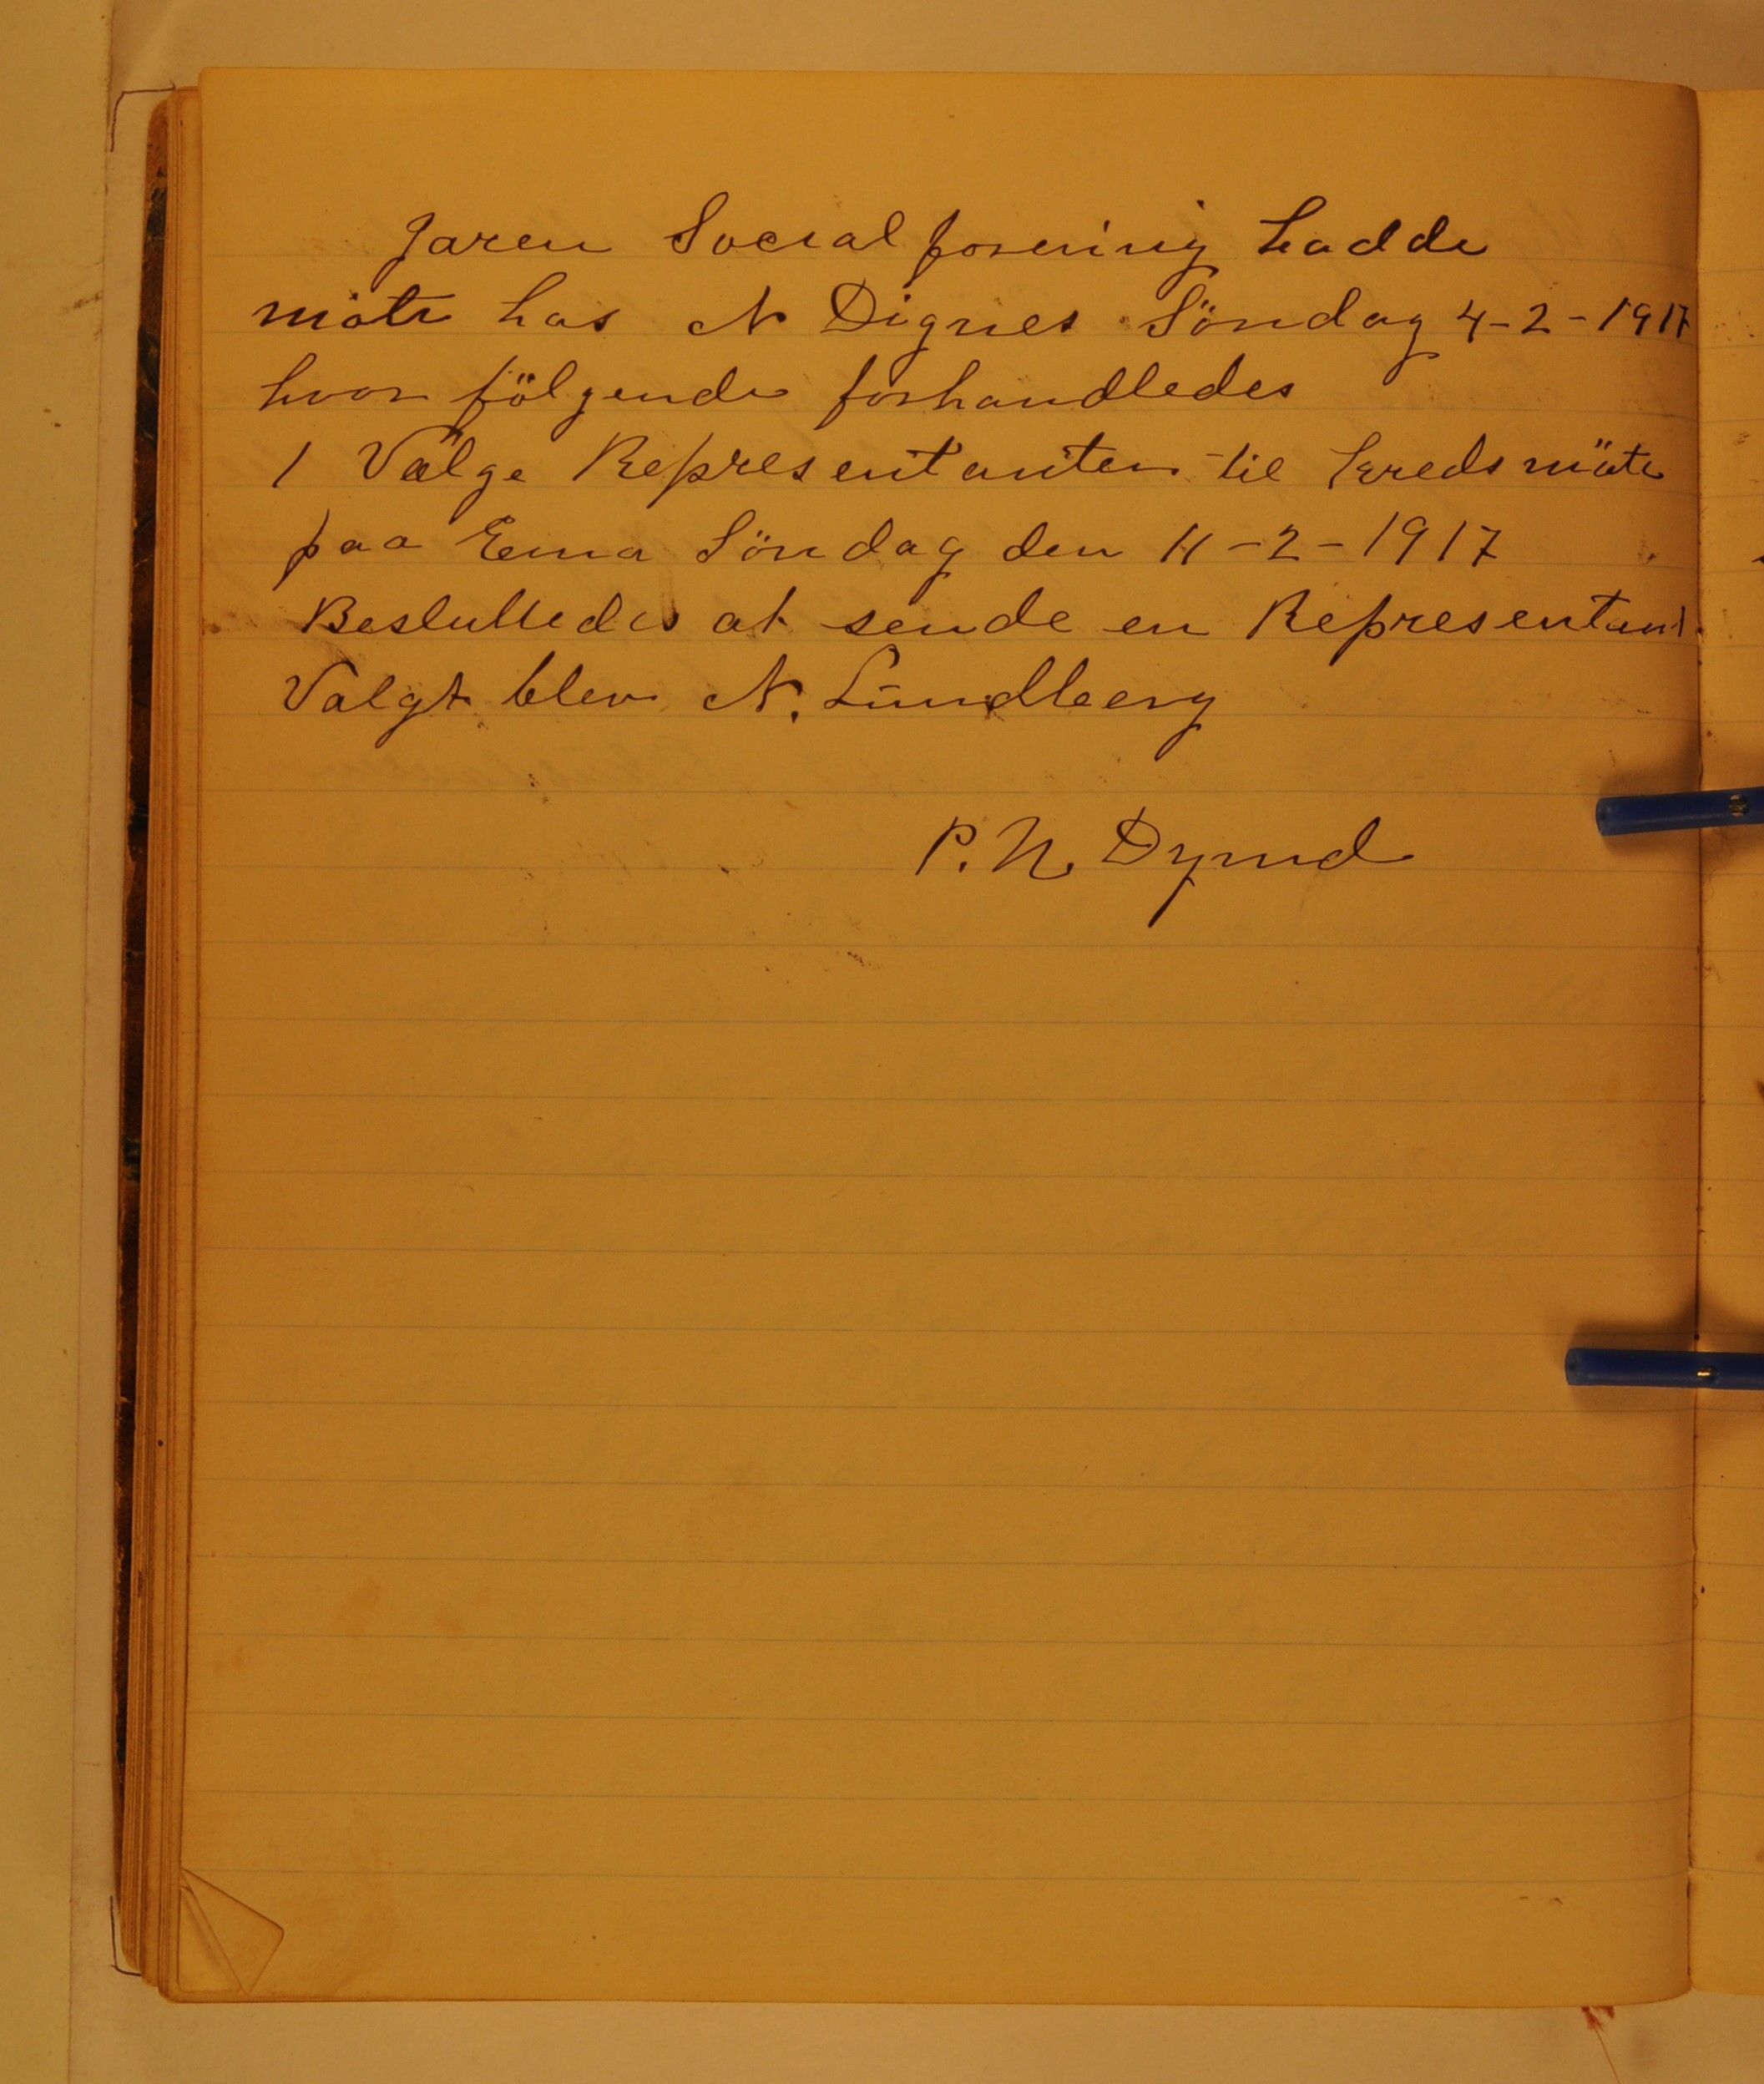 Jaren Social forening hadde
möte hos N Dignes Söndag 4-2-1917
hvor fölgende forhandledes
1 Vælge Representanter til Kredsmöte
paa Eina Söndag den 11-2-1917
Besluttedes at sende en Representant
Valgt blev N. Lundberg
P. N. Dynnd